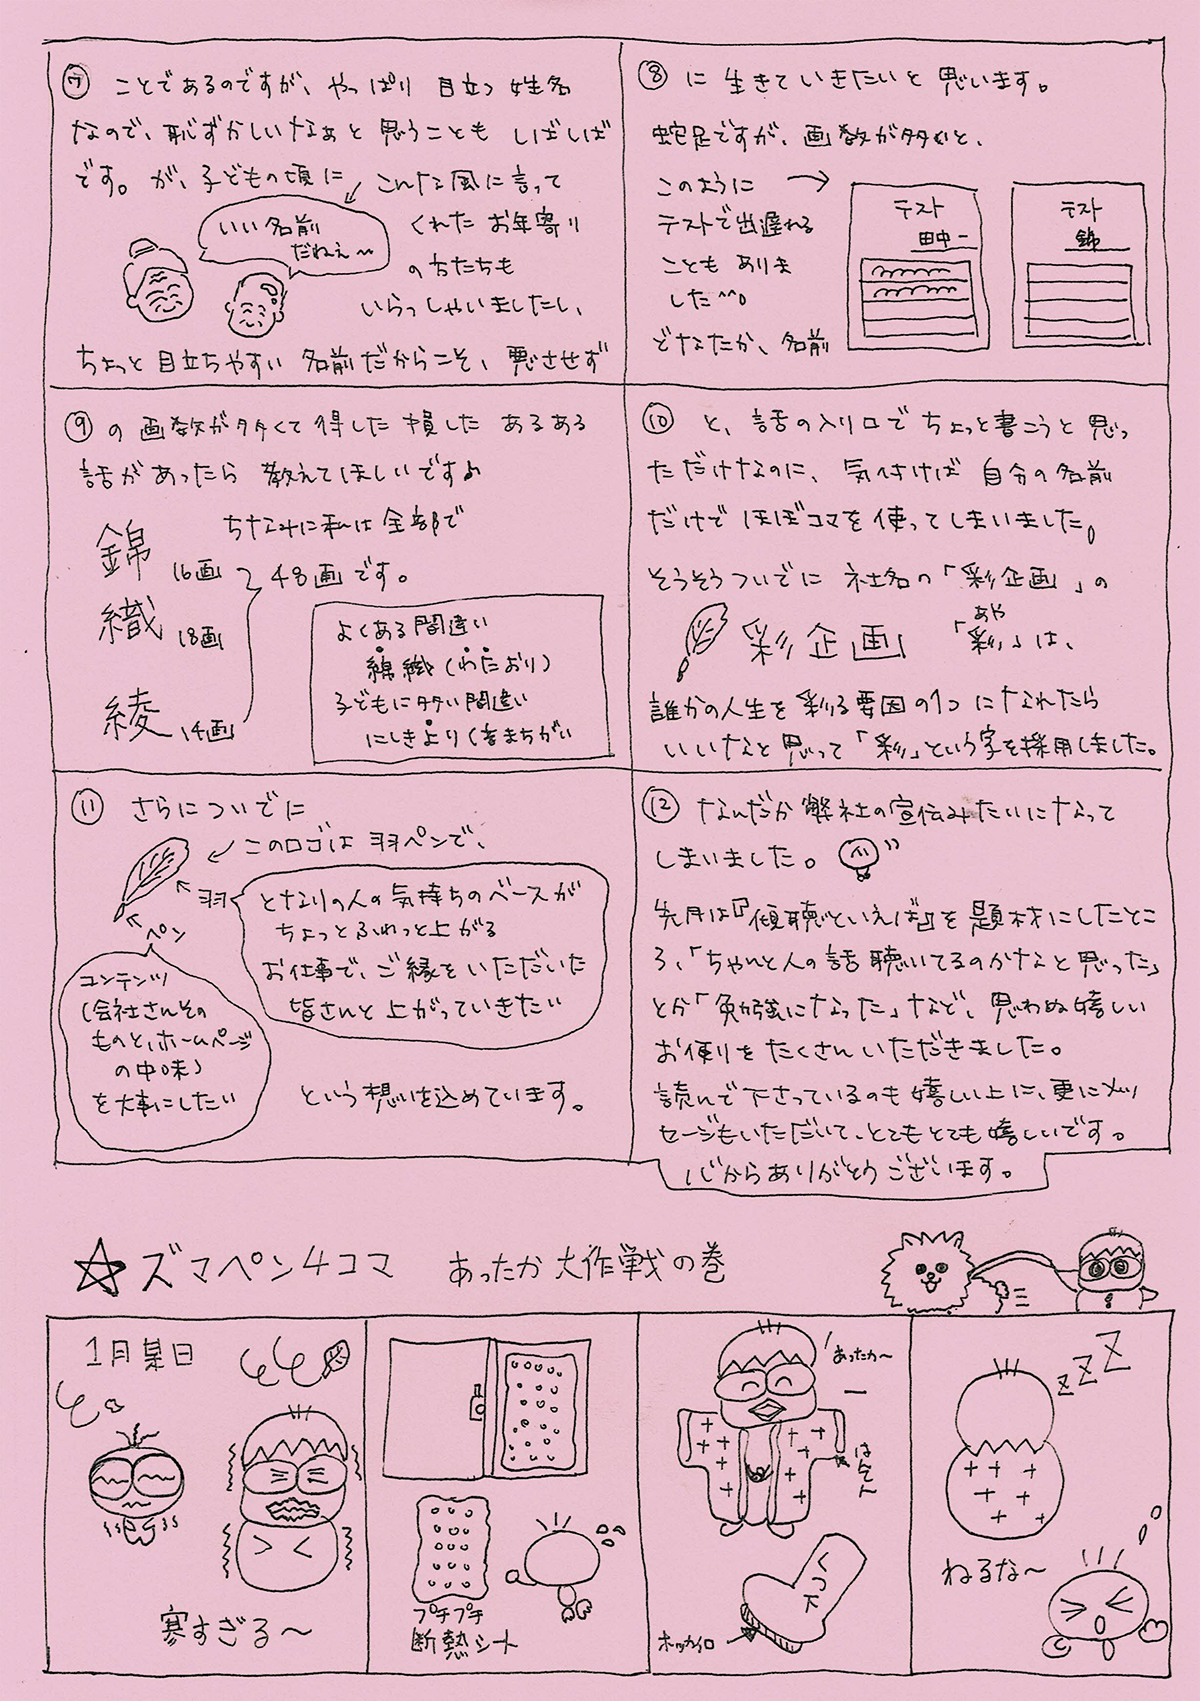 ⑦ ことであるのですが、やっぱり 目立つ 姓名
なので、恥ずかしいなぁと 思うことも しばしば
です。が、子どもの頃に こんな風に言って
くれた お年寄り
の方たちも
いらっしゃいましたし、
いい名前
だねぇ〜
ちょっと目立ちやすい 名前だからこそ、悪させず
⑧ に 生きて いきたいと 思います。
蛇足ですが、画数が多いと、
このように →
テストで出遅れる
ことも ありま
した^^。
どなたか、名前
テスト
田中一
テスト
錦
⑨ の 画数が多くて 得した 損した あるある
話が あったら 教えて ほしいです♪
ちなみに 私は 全部で
48画です。
錦 16画
織 18画
綾 14画
よくある間違い
綿織(わたおり)
子どもに多い間違い
にしきより(音まちがい
⑩ と、話の入り口で ちょっと書こうと 思っ
ただけなのに、気付けば 自分の名前
だけで ほぼコマを 使って しまいました。
そうそう ついでに 社名の「彩企画」の
彩企画
あや
「彩」は、
誰かの人生を 彩る要因の1つ に なれたら
いいなと 思って「彩」という字を採用しました。
⑪ さらに ついでに
このロゴは 羽ペンで、
羽
ペン
となりの人の 気持ちのベースが
ちょっと ふわっと上がる
お仕事で、ご縁を いただいた
皆さんと 上がっていきたい
コンテンツ
(会社さんその
ものと、ホームページ
の中味)
を大事にしたい
という 想いを込めています。
⑫ なんだか 弊社の宣伝みたいになって
しまいました。
先月は『傾聴といえば』を 題材にしたとこ
ろ、「ちゃんと人の話 聴いてるのかなと 思った」
とか「勉強になった」など、思わぬ嬉しい
お便りを たくさん いただきました。
読んで 下さっているのも 嬉しい上に、更にメッ
セージもいただいて、とてもとても 嬉しいです。
心からありがとう ございます。
☆ズマペン4コマ あったか大作戦の巻
1月某日
寒すぎる〜
プチプチ
断熱シート
あったか〜
はんてん
くつ下
ホッカイロ
zzz
ねるな〜